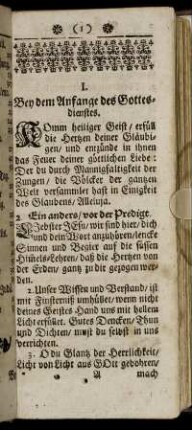 (1)
I.
Bey dem Anfange des Gottes-
dienstes.
KOmm heiliger Geist / erfüll
die Hertzen deiner Gläubi-
gen / und entzünde in ihnen
das Feuer deiner göttlichen Liebe:
Der du durch Mannigfaltigkeit der
Zungen / die Völcker der gantzen
Welt versammlet hast in Einigkeit
des Glaubens, Alleluja.
2. Ein anders / vor der Predigt.
LIebster JEsu / wir sind hier / dich
und dein Wort anzuhören / lencke
Sinnen und Begier auf die süssen
Himels-Lehren / daß die Hertzen von
der Erden / gantz zu dir gezogen wer-
den.
2. Unser Wissen und Verstand / ist
mit Finsterniß umhüllet / wenn nicht
deines Geistes Hand uns mit hellem
Licht erfüllet. Gutes Dencken / Thun
und Dichten / must du selbst in uns
verrichten.
3. O du Glantz der Herrlichkeit /
Licht von Licht aus GOtt gebohren /
A mach